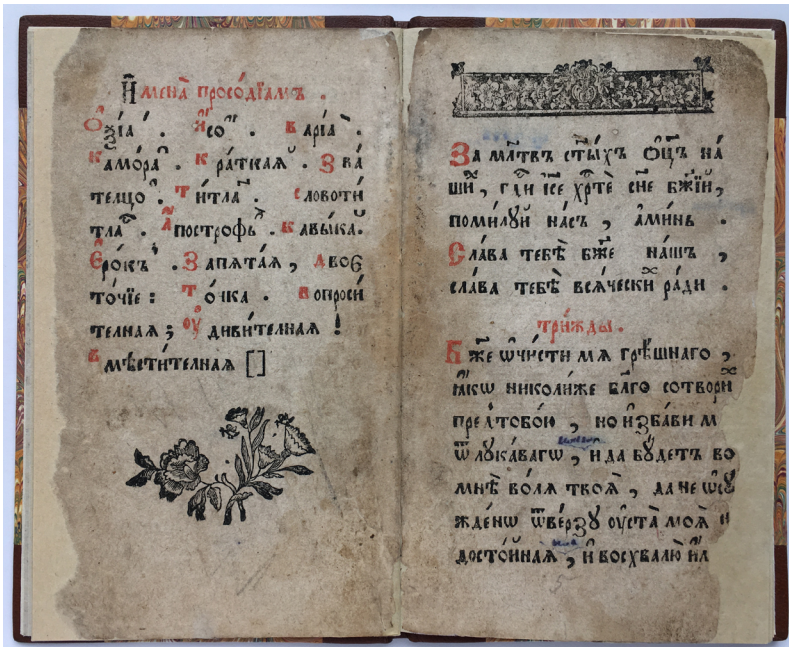 И҆мена̀ просѡ́дїамъ .
Ѻ҆ѯі́а ́. И҆со̀ ҆. Варі́а ̀.
Камо́ра ̑. Кра́ткаѧ ̆. Зва́
тел̾цо ҆̀. Ти́тла ҃. Словоти́
тла ⷭ҇. А҆постро́фь ҆̀. Кавы́ка.
Є҆ро́къ ̾. Запѧта́ѧ , Двоє
то́чїе : То́чка . Вопроси́
телнаѧ ; Оу҆диви́телнаѧ !
Вмѣсти́телнаѧ []
За мл҃твъ ст҃ы́хъ ѻ҆ц҃ъ на́
ши́, гдⷭ҇и і҆с҃е хрⷭ҇тѐ сн҃е бж҃їй,
поми́лꙋй на́съ , а҆ми́нь .
Сла́ва тебѣ̀ бж҃е на́шъ ,
сла́ва тебѣ̀ всѧ́чески ра́ди .
три́жды .
Бж҃е ѡ҆чи́сти мѧ грѣ́шнаго ,
ꙗ҆́кѡ николи́же бл҃го сотвори́
пред̾тобо́ю , но и҆зба́ви м
ѿ лꙋка́вагѡ , и҆ да бꙋ́детъ во
мнѣ̀ во́лѧ твоѧ̀ , да не ѡ҆сꙋ
жде́нѡ ѿве́рзꙋ оу҆ста̀ моѧ̀ и
досто́йнаѧ , и҆ восхвалю̀ и҆́